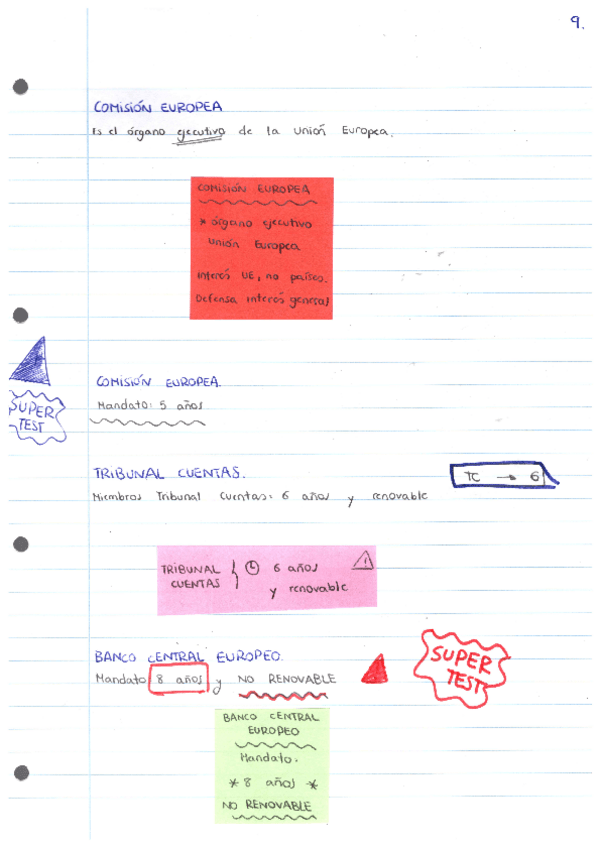 9.
COMISIÓN EUROPEA
Es el órgano ejecutivo de la Unión Europea.
COMISIÓN EUROPEA
* órgano ejecutivo
Unión Europea
Interés UE, no países.
Defensa interés general
COMISIÓN EUROPEA.
Mandato: 5 años
SUPER
TEST
TRIBUNAL CUENTAS.
TC → 6
Miembros Tribunal Cuentas: 6 años y renovable
TRIBUNAL
CUENTAS
6 años
y renovable
BANCO CENTRAL EUROPEO.
Mandato 8 años y NO RENOVABLE
SUPER
TEST
BANCO CENTRAL
EUROPEO
Mandato:
* 8 años *
NO RENOVABLE